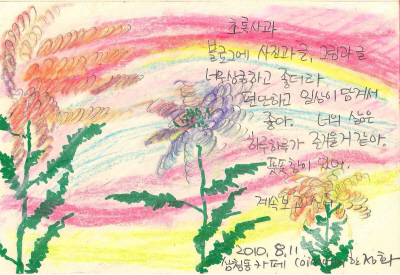 초록사과
블로그에 사진과 글, 그림과 글
너무 상큼하고 좋더라
편안하고 일상이 담겨서
좋아. 너의 삶은
하루하루가 즐거울거 같아.
풋풋함이 있어.
계속 보고 싶다
2010. 8. 11
삼청동 카페 한정화